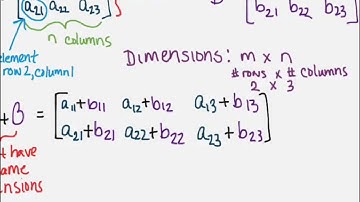 [a21 a22 a23]
b21 b22 b23]
n columns
element
row 2, column 1
Dimensions: m x n
# rows x # columns
2 x 3
+ B = [a11+b11 a12+b12 a13+b13
a21+b21 a22+b22 a23+b23]
t have
ame
ensions